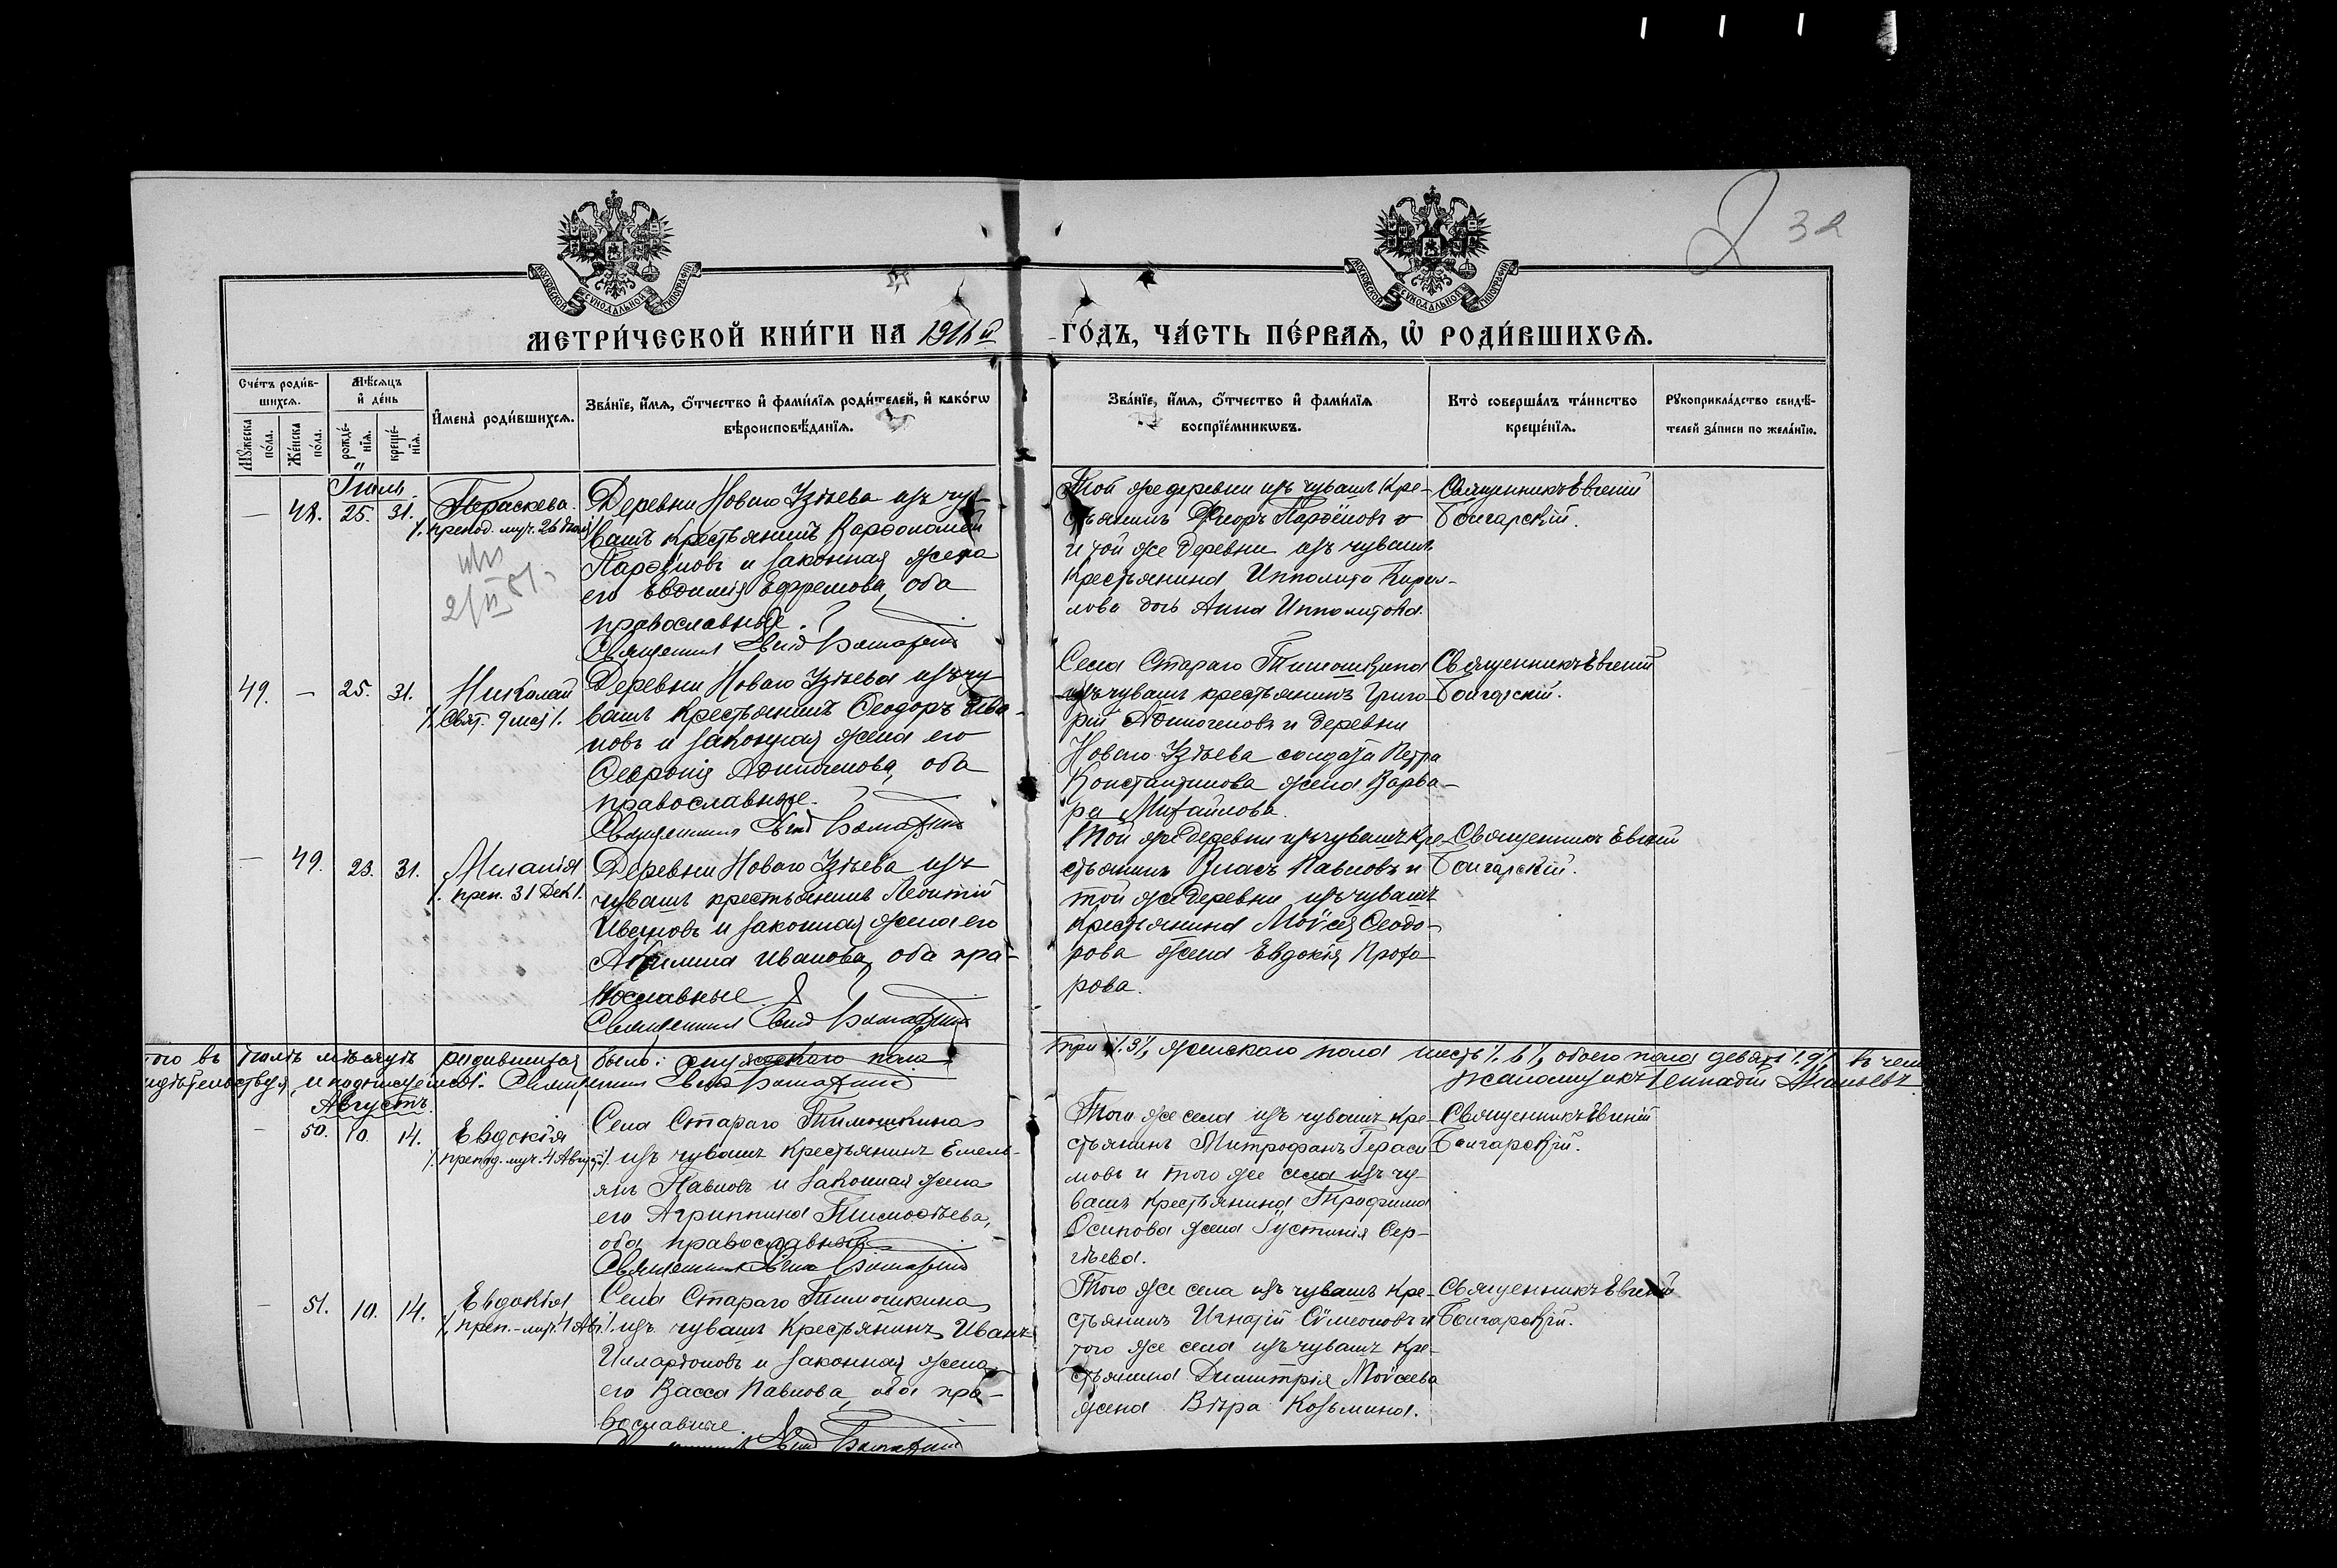 32
МОСКОВСКОЙ СѴНОДАЛЬНОЙ ТИПОГРАФІИ
МОСКОВСКОЙ СѴНОДАЛЬНОЙ ТИПОГРАФІИ
МЕТРИ́ЧЕСКОЙ КНИ́ГИ НА 1916 й
ГО́ДЪ, ЧА́СТЬ ПЕ́РВАѦ, Ѡ҆ РОДИ́ВШИХСѦ.
Сче́тъ роди́в-
шихсѧ.
Мꙋ́жеска по́ла.
Же́нска по́ла.
Мѣ́сѧцъ
и҆ де́нь
рожде́-нїѧ.
креще́-нїѧ.
И҆мена̀ роди́вшихсѧ.
Зва́нїе, и҆́мѧ, ѻ҆́тчество и҆ фами́лїѧ роди́телей, и҆ како́гѡ
вѣроисповѣ́данїѧ.
Зва́нїе, и҆́мѧ, ѻ҆́тчество и҆ фами́лїѧ
воспрїе́мникѡвъ.
Кто̀ соверша́лъ та́инство
креще́нїѧ.
Рꙋкоприкла́дство свидѣ́-
телей за́писи по жела́нїю.
Іюль.
— 48. 25. 31.
Параскева.
/. препод. муч. 26 Іюля/
Деревни Новаго Узѣева изъ чу-
вашъ крестьянинъ Варѳоломей
Парѳеновъ и законная жена
его Евѳимія Ефремова, оба
православные.
Священникъ
Той же деревни изъ чувашъ кре-
стьянинъ Парѳёновъ
и той же деревни изъ чувашъ
крестьянина Ипполита Кирил-
лова дочь Анна Ипполитова.
Священникъ Евгеній
Болгарскій.
49. — 25. 31.
Николай
/. Свят. 9 мая/.
Деревни Новаго Узѣева изъ чу
вашъ крестьянинъ Ѳеодоръ Ива-
новъ и законная жена его
Ѳеѳронія Аѳиногенова, оба
православные.
Священникъ
Села Стараго Тимошкина
изъ чувашъ крестьянинъ Григо-
рій Аѳиногеновъ и деревни
Новаго Узѣева солдата Петра
Константинова жена Варва-
ра Михайлова.
Священникъ Евгеній
Болгарскій.
— 49. 23. 31.
Меланія
/. преп. 31 Дек/.
Деревни Новаго Узѣева изъ
чувашъ крестьянинъ Леонтій
Ивановъ и законная жена его
Акилина Иванова, оба пра-
вославные.
Священникъ
Той же деревни изъ чувашъ кре-
стьянинъ Власъ Павловъ и
той же деревни изъ чувашъ
крестьянина Моѵсея Ѳеодо-
рова жена Евдокія Прохо
рова.
Священникъ Евгеній
Болгарскій.
того въ Іюлѣ мѣсяцѣ родившихся было: мужескаго пола три /.3/, женскаго пола шесть /.6/, обоего пола девять /.9/. въ чем
идѣтельствуя, и подписуемся: Священникъ Псаломщикъ Геннадій
Августъ.
— 50. 10. 14.
Евдокія
/. препод. муч. 4 Августа/.
Села Стараго Тимошкина
изъ чувашъ крестьянинъ Емель-
янъ Павловъ и законная жена
его Агриппина Тимоѳѣева,
оба православные.
Священникъ
Того же села изъ чувашъ кре-
стьянинъ Митрофанъ Гераси-
мовъ и того же села изъ чу-
вашъ крестьянина Трофима
Осипова жена Іустинія Сер-
гѣева.
Священникъ Евгеній
Болгарскій.
— 51. 10. 14.
Евдокія
/. преп.-муч. 4 Авг./.
Села Стараго Тимошкина
изъ чувашъ крестьянинъ Иванъ
Илларіоновъ и законная жена
его Васса Павлова, оба пра-
вославные.
Того же села изъ чувашъ кре-
стьянинъ Игнатій Сѵмеоновъ и
того же села изъ чувашъ кре-
стьянина Димитрія Моѵсеева
жена Вѣра Козьмина.
Священникъ Евгеній
Болгарскій.